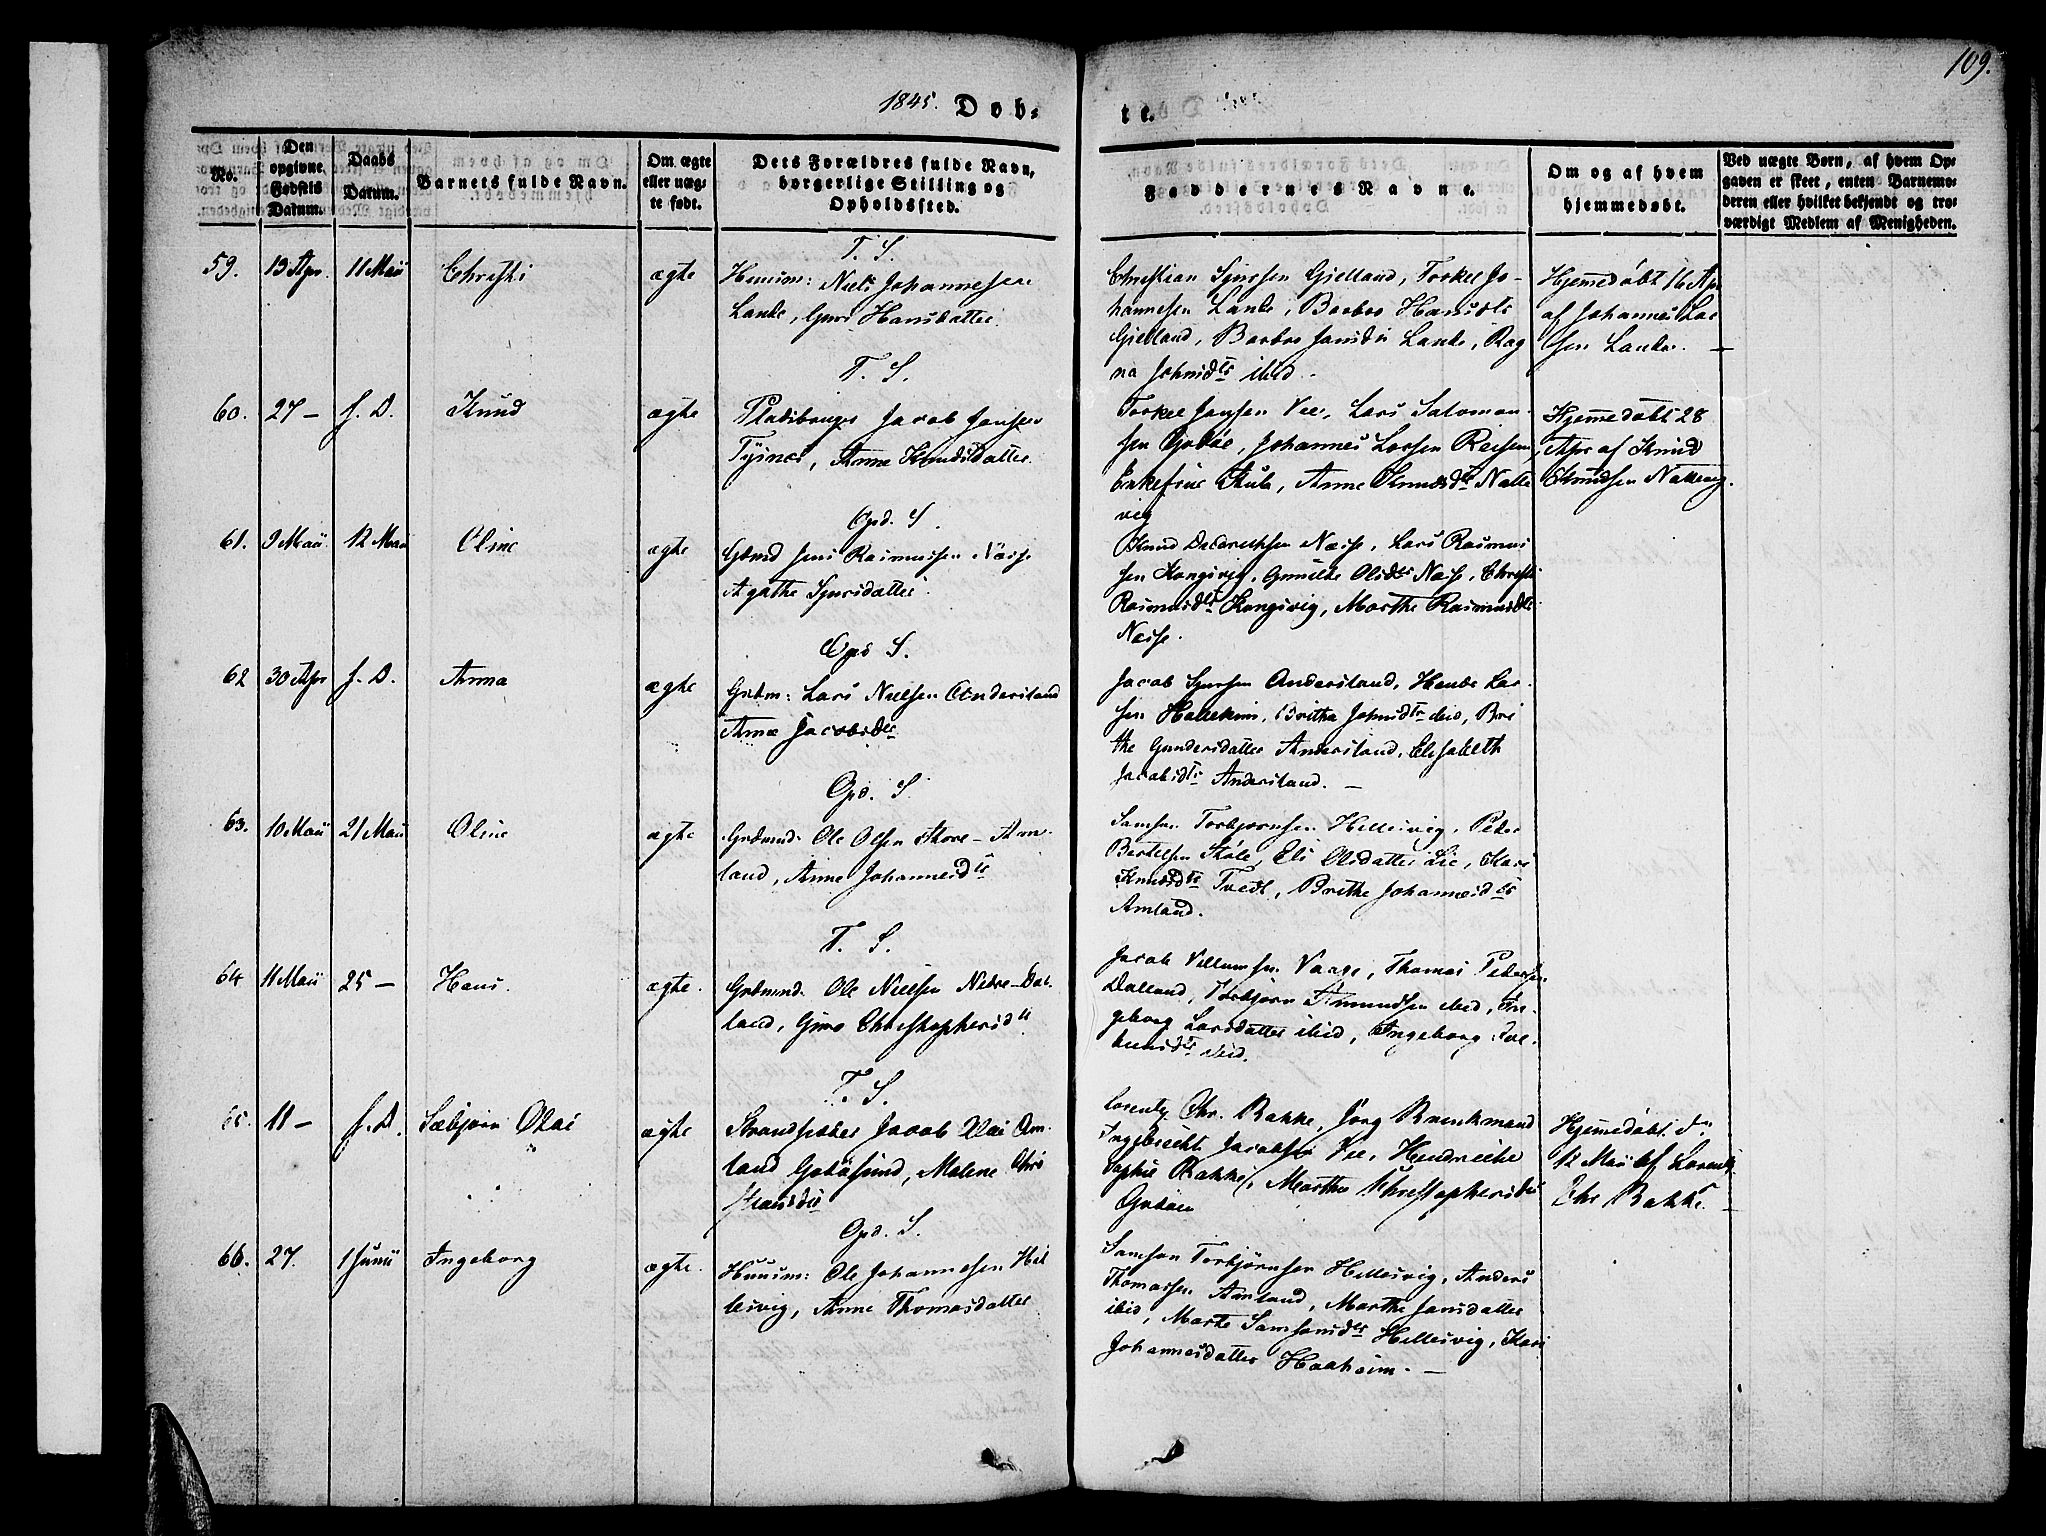 109.
1845. Døb-
te.
No.
Den
opgivne
Fødsels
Datum.
Daabs
Datum.
Barnets fulde Navn.
Om ægte
eller uæg-
te født.
Dets Forældres fulde Navn,
borgerlige Stilling og
Opholdssted.
Faddernes Navne.
Om og af hvem
hjemmedøbt.
Ved uægte Børn, af hvem Op-
gaven er skeet, enten Barnemo-
deren eller hvilket bekjendt og tro-
værdigt Medlem af Menigheden.
T. S.
59. 13 Apr. 11 Maii Christi ægte
Huusm: Niels Johannesen
Lande, Guro Hansdatter.
Christian Sjursen Gjelland, Torkel Jo-
hannesen Lande, Barbro Hansdtr
Gjelland, Barbro Jansdtr Lande, Rag
na Johnsdtr ibid.
Hjemmedøbt 16 Apr
af Johannes Lar
sen Lande. —
T. S.
60. 27 – s. D. Knud ægte
Pladsbruger Jacob Jansen
Tysnes, Anne Knudsdatter.
Torkel Jansen Vee, Lars Salomon-
sen Godøe, Johannes Larsen Reisem,
Enkefrue Kule, Anne Knudsdtr Natte
vig
Hjemmedøbt 28
Apr af Knud
Knudsen Nattevig.
Opd. S.
61. 9 Maii 12 Maii Oline ægte
Gbmd Jens Rasmussen Næsse
Agathe Sjursdatter.
Knud Dederichsen Næsse, Lars Rasmus
sen Kongsvig, Gunilde Olsdtr Næsse, Christi
Rasmusdtr Kongsvig, Marthe Rasmusdtr
Næsse.
Opd S.
62 30 Apr s. D. Anna ægte
Grdm: Lars Nielsen Andersland
Anna Jacobsdtr
Jacob Sjursen Andersland, Lar-
sen Hallekim, Britha Johnsdtr ibid, Bri
the Gundersdatter Andersland, Elisabeth
Jacobsdtr Andersland. —
Opd. S.
63. 10 Maii 21 Maii Oline ægte
Grdmnd Ole Olsen Store-Am-
land, Anne Johannesdtr
Samson Torbjørnsen Hillesvig, Peder
Bertelsen Støle, Eli Olsdatter Lie, Kari
Knudsdtr Tvedt, Brithe Johannesdtr
Amland.
T. S.
64 11 Maii 25 – Hans. ægte.
Grdmnd. Ole Nielsen Nedre-Dal-
land, Guro Christophersdtr
Jacob Villumsen Vaage, Thomas Pedersen
Dalland, Torbjørn Amundsen ibid, In-
geborg Larsdatter ibid, Ingeborg
ibid.
T. S.
65. 11 – s. D. Sæbjørn Olai ægte
Strandsidder Jacob Olai Am-
land Godøsund, Malene Chri
stiansdtr
Lorentz Chr. Bakke, Jørg Brinkmand
Ingebrecht Jacobsen Vee, Hendricke
Sophie Bakke, Marthe Christophersdtr
Godøen
Hjemmedøbt d.
12 Maii af Lorentz
Chr Bakke. —
Opd. S.
66. 27. 1 Junii Ingeborg ægte.
Huusm: Ole Johannesen Hil
lesvig, Anne Thomasdatter
Samson Torbjørnsen Hillesvig, Anders
Thomassen Amland, Marthe Jansdatter
ibid, Marte Samsonsdtr Hillesvig, Kari
Johannesdatter Haaheim. —